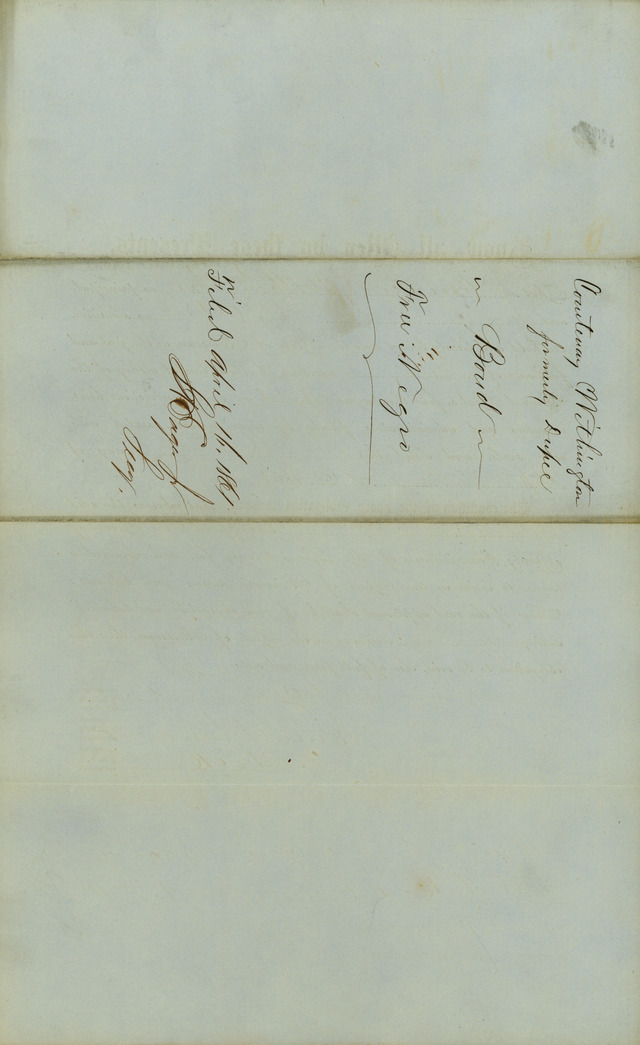 Courtenay Withington
formerly Dupee
~ Bond ~
Free Negro
Filed April 16. 1861